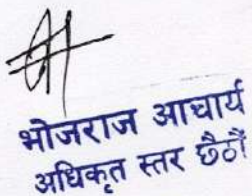 भोजराज आचार्य
अधिकृत स्तर छैठौं